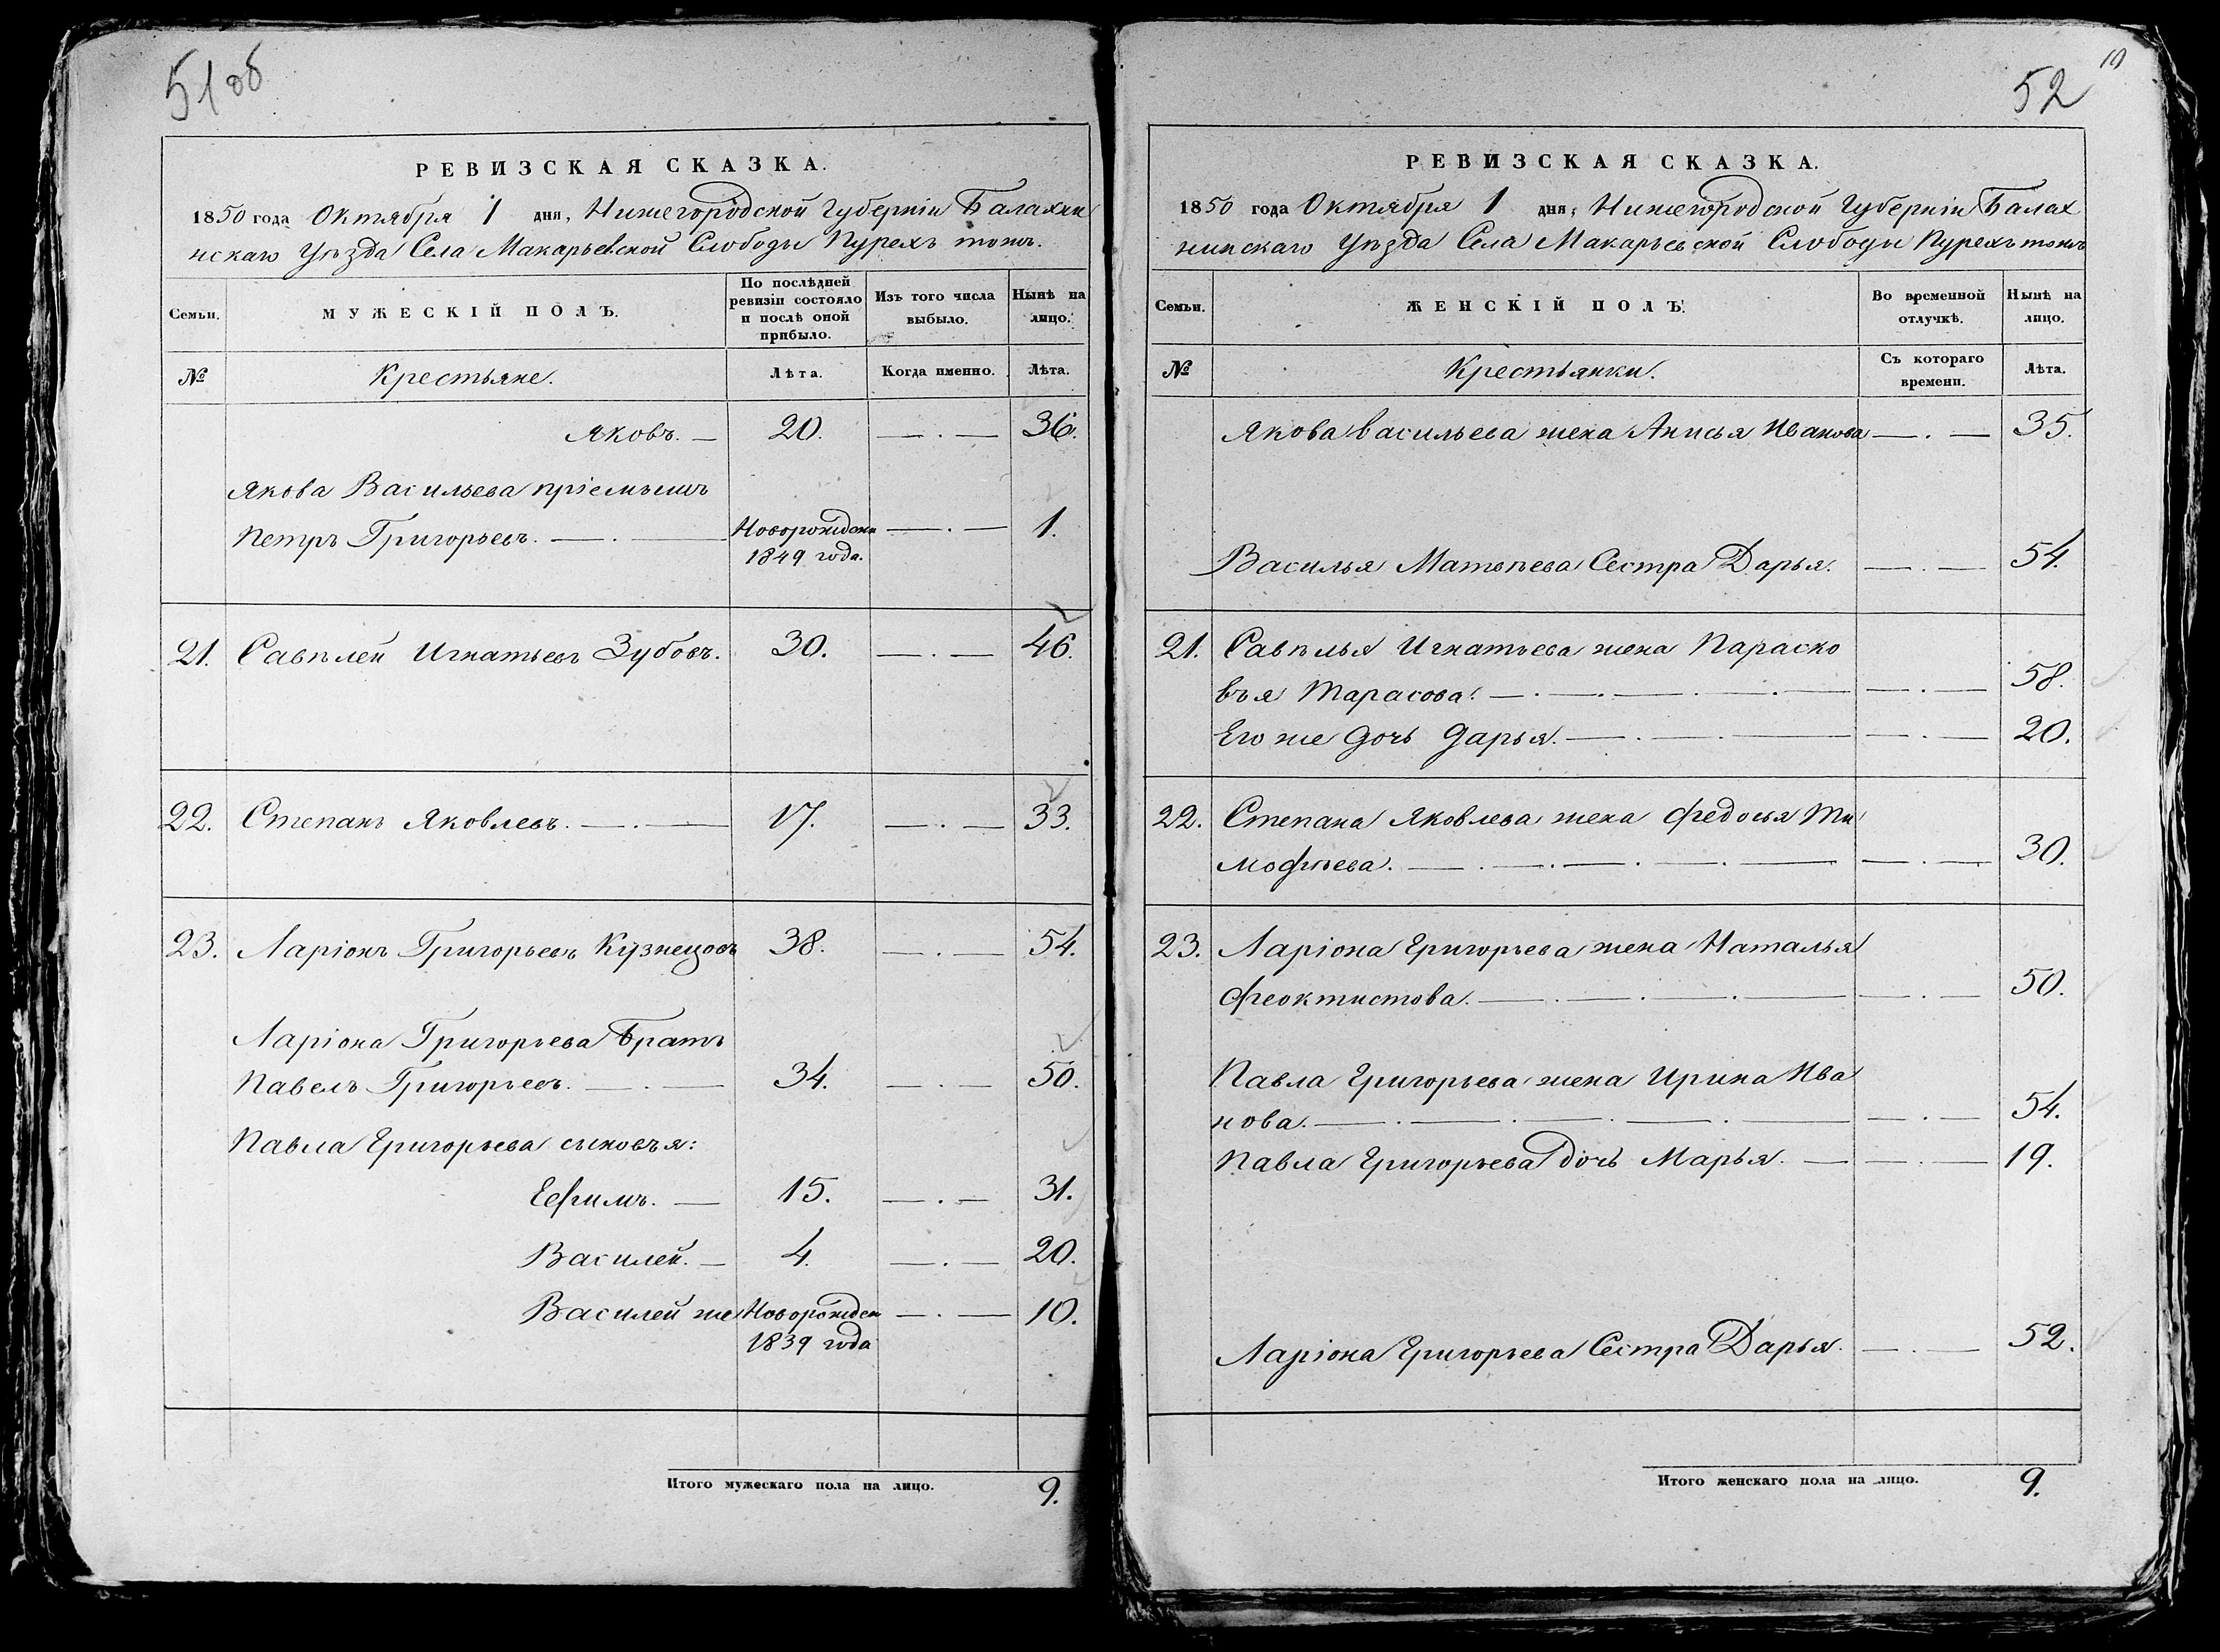 51об
РЕВИЗСКАЯ СКАЗКА.
1850 года Октября 1 дня, Нижегородской Губерніи Балахни
нскаго Уѣзда Села Макарьевской Слободы Пурехъ тожъ.
Семьи.
МУЖЕСКІЙ ПОЛЪ.
По послѣдней ревизіи состояло и послѣ оной прибыло.
Изъ того числа выбыло.
Нынѣ на лицо.
№
Крестьяне.
Лѣта.
Когда именно.
Лѣта.
Яковъ. — 20. — . — 36.
Якова Васильева пріемышъ
Петръ Григорьевъ. — . — Новорожден — . — 1.
1849 года.
21. Савѣлей Игнатьевъ Зубовъ. 30. — . — 46.
22. Степанъ Яковлевъ. — . — 17. — . — 33.
23. Ларіонъ Григорьевъ Кузнецовъ 38. — . — 54.
Ларіона Григорьева Братъ
Павелъ Григорьевъ. — . — 34. — . — 50.
Павла Григорьева сыновья:
Ефимъ. — 15. — . — 31.
Василей. — 4. — . — 20.
Василей же Новорожден — . — 10.
1839 года
Итого мужескаго пола на лицо. 9.
10
52
РЕВИЗСКАЯ СКАЗКА.
1850 года Октября 1 дня, Нижегородской Губерніи Балах
нинскаго Уѣзда Села Макарьевской Слободы Пурехъ тожъ
Семьи.
ЖЕНСКІЙ ПОЛЪ.
Во временной отлучкѣ.
Нынѣ на лицо.
№
Крестьянки.
Съ котораго времени.
Лѣта.
Якова Васильева жена Анисья Иванова — . — 35.
Василья Матвѣева Сестра Дарья. — . — 54.
21. Савѣлья Игнатьева жена Параско
вья Тарасова. — . — . — . — . — — . — 58.
Его же дочь Дарья. — . — . — — . — 20.
22. Степана Яковлева жена Федосья Ти
мофѣева. — . — . — . — . — — . — 30.
23. Ларіона Григорьева жена Наталья
Феоктистова. — . — . — . — — . — 50.
Павла Григорьева жена Ирина Ива
нова. — . — . — . — . — — . — 54.
Павла Григорьева дочь Марья. — — . — 19.
Ларіона Григорьева Сестра Дарья. — . — 52.
Итого женскаго пола на лицо. 9.